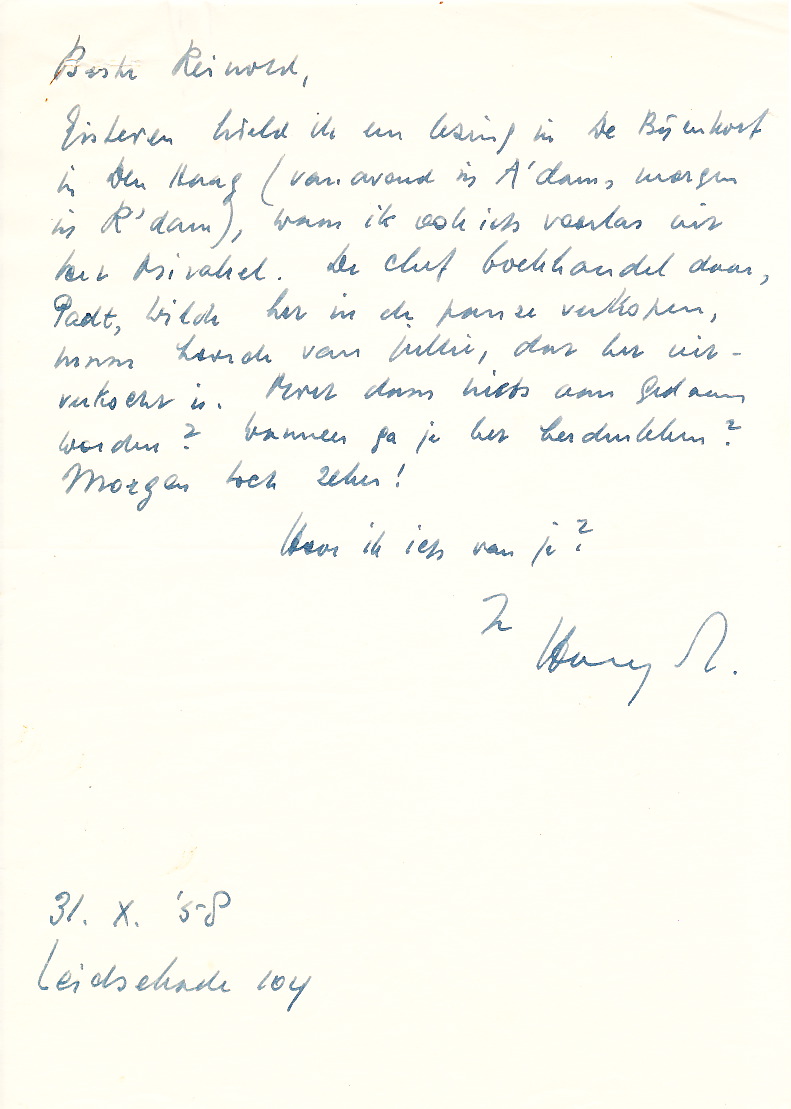 Beste Reinold,
Gisteren hield ik een lezing in De Bijenkorf
in Den Haag (vanavond in A'dam, morgen
in R'dam), waar ik ook iets voorlas uit
het Mirakel. De chef boekhandel daar,
Padt, wilde het in de pauze verkopen,
maar hoorde van jullie, dat het uit-
verkocht is. Moet daar niets aan gedaan
worden? Wanneer ga je het herdrukken?
Morgen toch zeker!
Hoor ik iets van je?
Je
Harry M.
31. X. '58
Leidsekade 104